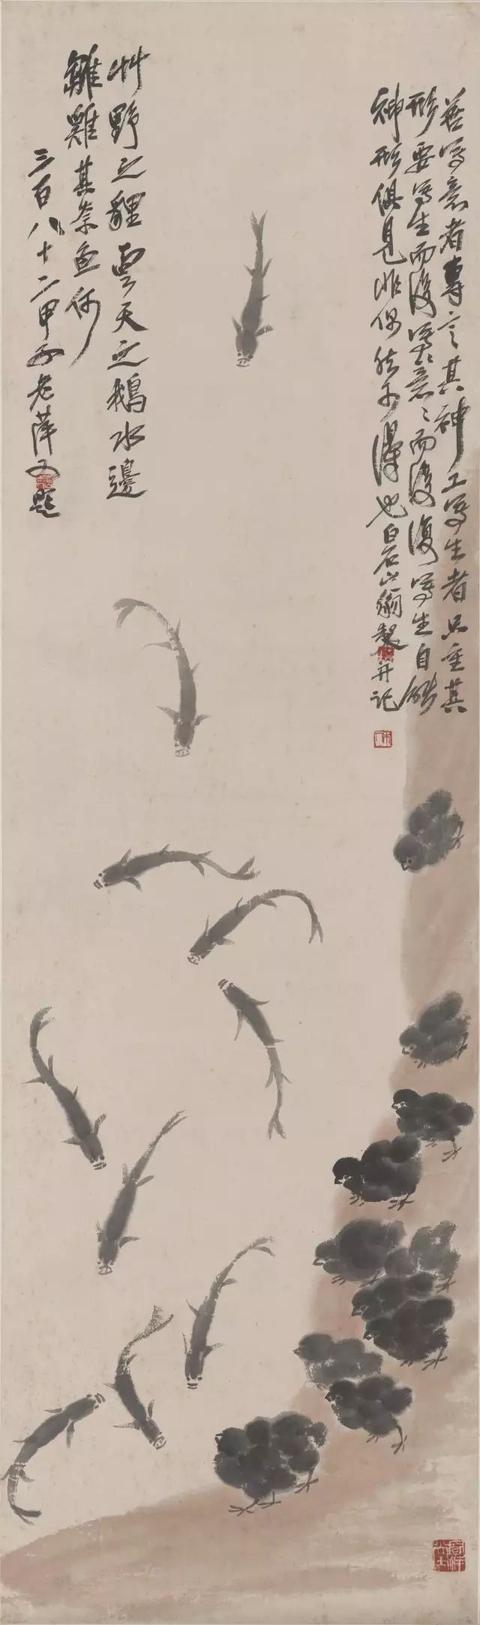 善寫意者專言其神工寫生者只重其
形要寫生而後寫意〻而後復寫生自能
神形俱見非偶然可得也白石山翁製并記
艸野之貍雲天之鵝水邊
雛雞其奈魚何
三百八十二甲子老萍又題